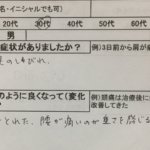 名・イニシャルでも可)
20代 30代 40代 50代
男
症状がありましたか? 例)3日前から肩が
足のしびれ、
のように良くなって(変化 例)頭痛は治療後に
か? 改善してきた
とれた、腰が痛いのが重さを感じる